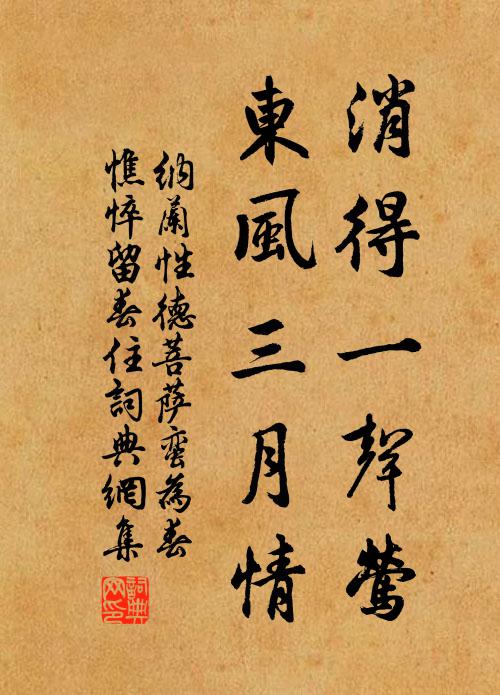 消得一聲鶯
東風三月情
納蘭性德菩薩蠻為春
憔悴留春住詞典網集
詞典
网印